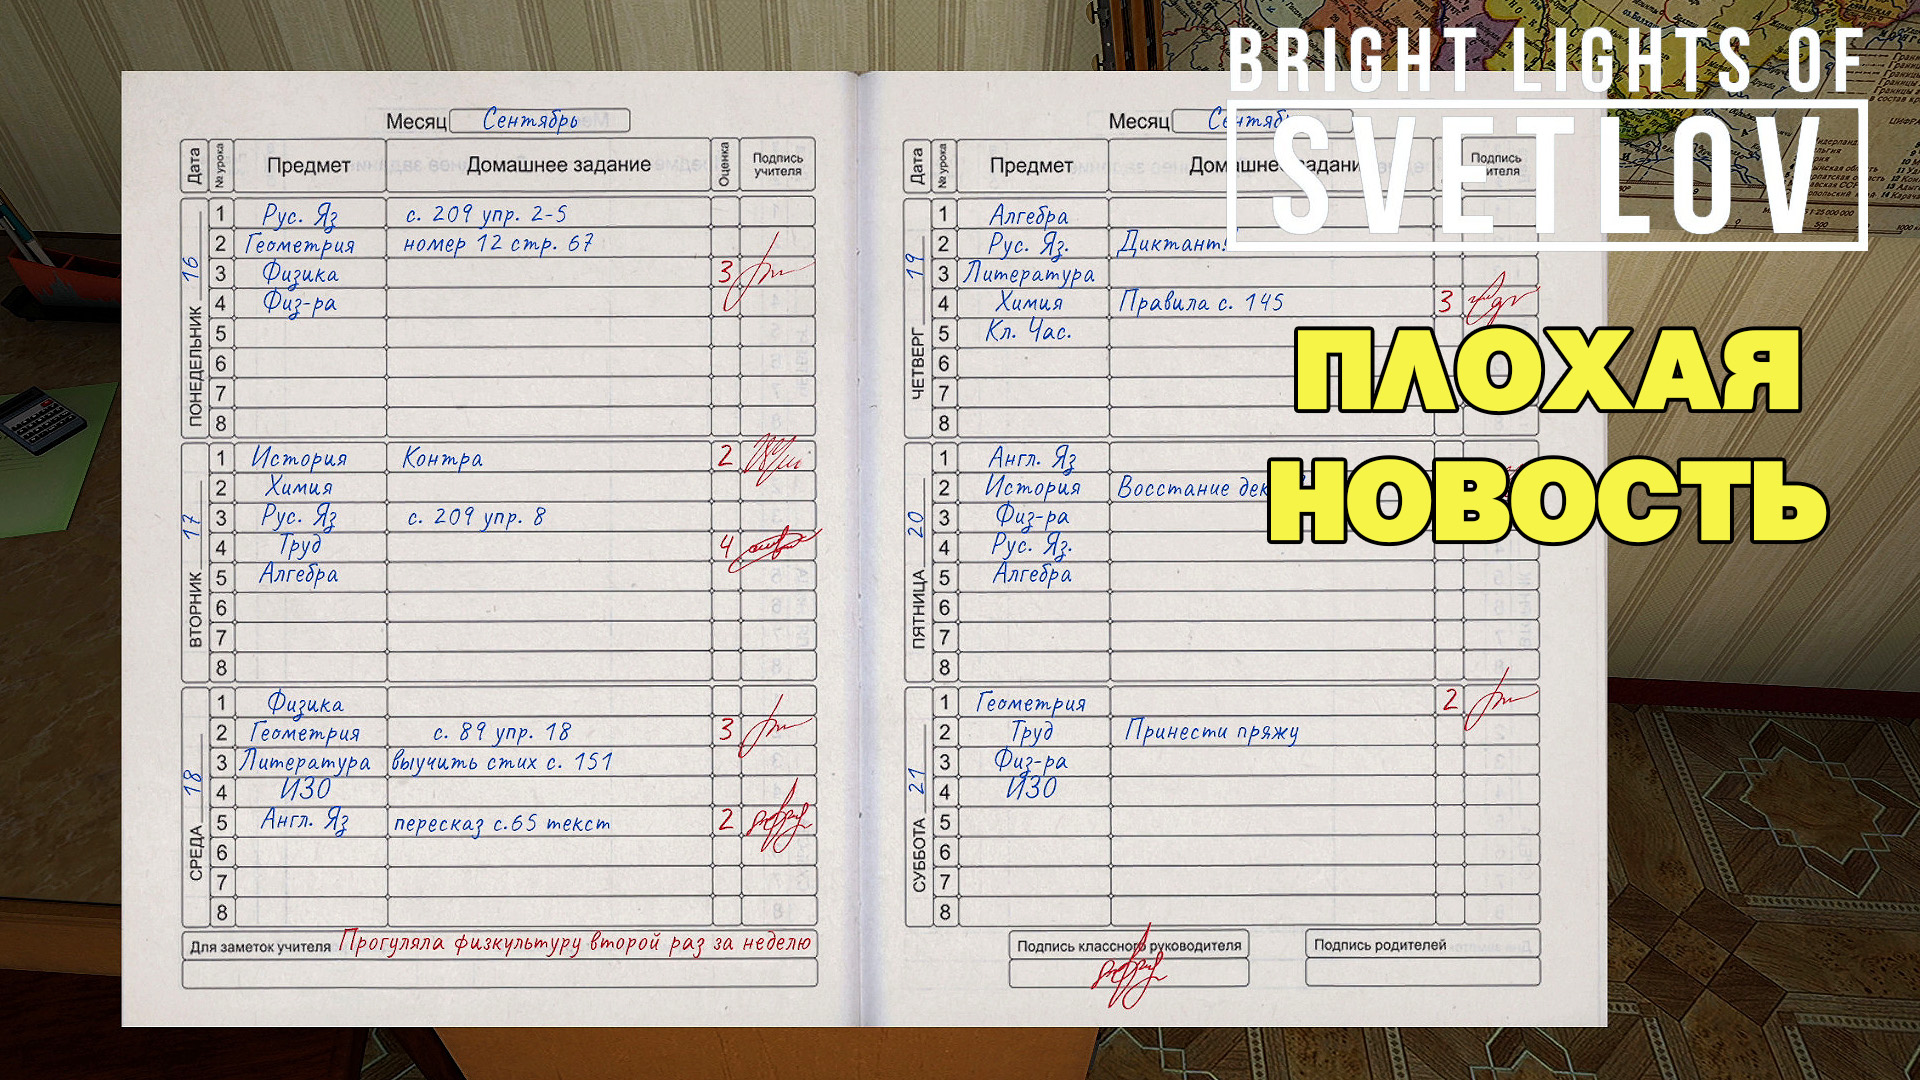 BRIGHT LIGHTS OF
SVETLOV
ПЛОХАЯ
НОВОСТЬ
Месяц Сентябрь
Дата № урока Предмет Домашнее задание Оценка Подпись учителя
ПОНЕДЕЛЬНИК 16
1 Рус. Яз с. 209 упр. 2-5
2 Геометрия номер 12 стр. 67
3 Физика 3
4 Физ-ра
5
6
7
8
ВТОРНИК 17
1 История Контра 2
2 Химия
3 Рус. Яз с. 209 упр. 8
4 Труд 4
5 Алгебра
6
7
8
СРЕДА 18
1 Физика
2 Геометрия с. 89 упр. 18 3
3 Литература выучить стих с. 151
4 ИЗО
5 Англ. Яз пересказ с.65 текст 2
6
7
8
Для заметок учителя Прогуляла физкультуру второй раз за неделю
Месяц
Дата № урока Предмет Подпись
ЧЕТВЕРГ 19
1 Алгебра
2 Рус. Яз. Диктант
3 Литература
4 Химия Правила с. 145 3
5 Кл. Час.
6
7
8
ПЯТНИЦА 20
1 Англ. Яз
2 История Восстание
3 Физ-ра
4 Рус. Яз.
5 Алгебра
6
7
8
СУББОТА 21
1 Геометрия 2
2 Труд Принести пряжу
3 Физ-ра
4 ИЗО
5
6
7
8
Подпись классного руководителя
Подпись родителей